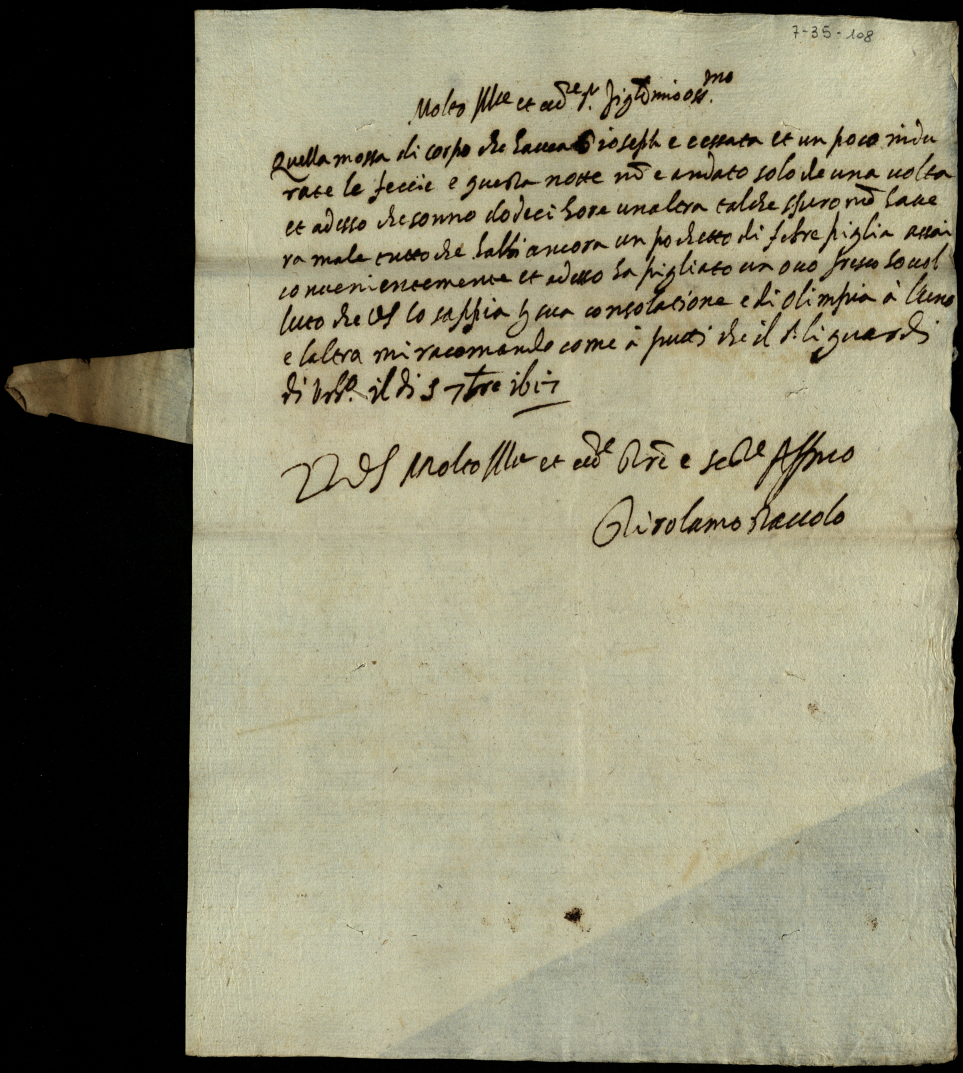 7-35-108
Molto Ill.re et ecc.te S.r figlio mio oss.mo
Quella mossa di corpo che havea Gioseph e cessata et un poco indu
rate le feccie e questa notte nō e andato solo che una volta
et adesso che sonno dodeci hore unaltra talche spero nō have
ra male tutto che habbi ancora un pochetto di febre piglia assai
convenientemente et adesso ha pigliato un ovo fresco ho vol
luto che VS lo sappia per sua consolatione e di Olimpia à l'uno
e laltra mi racomando come à putti che il S.r li guardi
di il di 3 7bre 1617
D VS Molto Ill.re et ecc.te e Affmo
Girolamo